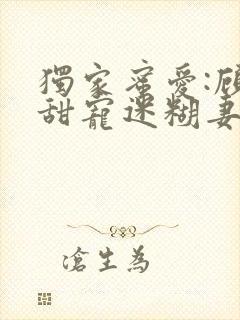 獨家蜜愛:顧
甜寵迷糊妻
滄生為